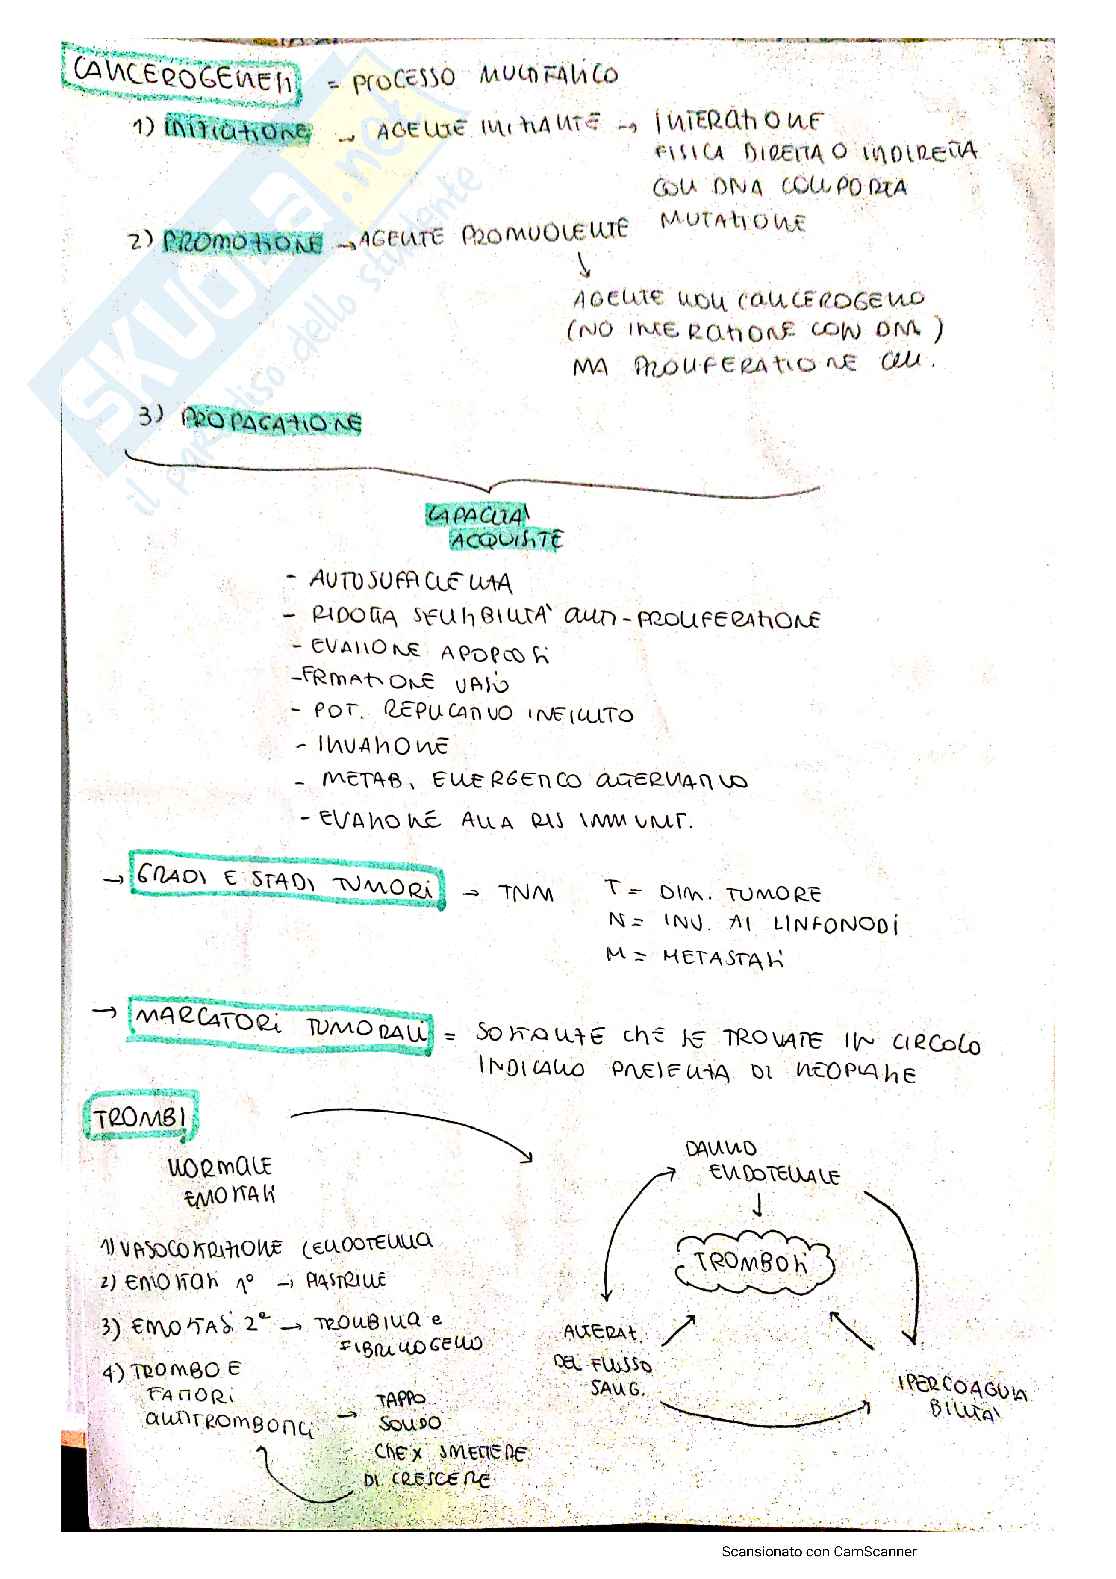 CANCEROGENESI = PROCESSO MULTIFASICO
1) INIZIAZIONE → AGENTE INIZIANTE → INTERAZIONE
FISICA DIRETTA O INDIRETTA
CON DNA COMPORTA
MUTAZIONE
2) PROMOZIONE → AGENTE PROMUOVENTE
AGENTE NON CANCEROGENO
(NO INTERAZIONE CON DNA)
MA PROLIFERAZIONE CELL.
3) PROPAGAZIONE
CAPACITÀ
ACQUISITE
- AUTOSUFFICIENZA
- RIDOTTA SENSIBILITÀ ANTI-PROLIFERAZIONE
- EVASIONE APOPTOSI
- FRMAZIONE VASI
- POT. REPLICATIVO INFINITO
- INVASIONE
- METAB. ENERGETICO ALTERNATIVO
- EVASIONE ALLA RIS IMMUNIT.
→ GRADI E STADI TUMORI → TNM T = DIM. TUMORE
N = INV. AI LINFONODI
M = METASTASI
→ MARCATORI TUMORALI = SOSTANZE CHE SE TROVATE IN CIRCOLO
INDICANO PRESENZA DI NEOPLASIE
TROMBI
NORMALE
EMOSTASI
1) VASOCOSTRIZIONE (ENDOTELINA
2) EMOSTASI 1° → PIASTRINE
3) EMOSTASI 2ª → TROMBINA e
FIBRINOGENO
4) TROMBO E
FATTORI
ANTITROMBOTICI → TAPPO
SOLIDO
CHE X SMETTERE
DI CRESCERE
DANNO
ENDOTELIALE
TROMBOSI
ALTERAT.
DEL FLUSSO
SANG.
IPERCOAGULA
BILITÀ
SKUOLA.net
il paradiso dello studente
Scansionato con CamScanner